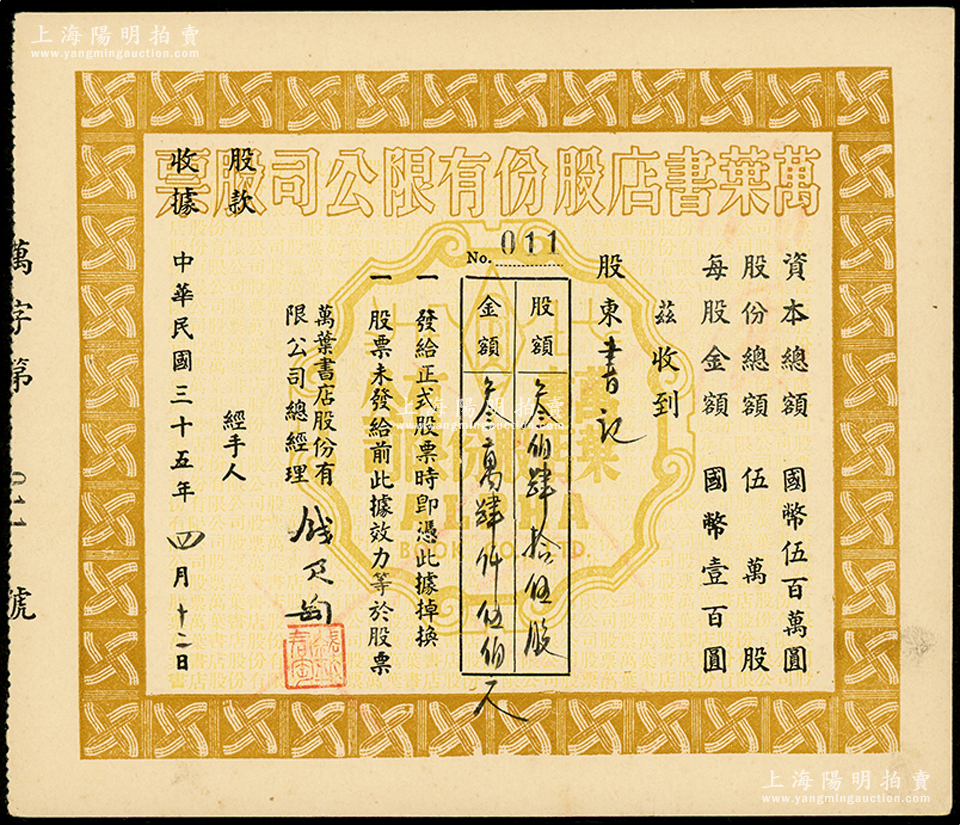 上海陽明拍賣
www.yangmingauction.com
萬葉書店股份有限公司股票
資本總額 國幣伍百萬圓
股份總額 伍萬股
每股金額 國幣壹百圓
茲收到
股東書記
No. 011
股額 叁伯肆拾伍股
金額 叁萬肆仟伍伯元
一 發給正式股票時即憑此據掉換
一 股票未發給前此據效力等於股票
萬葉書店股份有
限公司總經理 錢君匋
經手人
中華民國三十五年四月十二日
股款
收據
萬字第 011 號
BOOK CO. LTD.
上海陽明拍賣
www.yangmingauction.com
上海陽明拍賣
www.yangmingauction.com